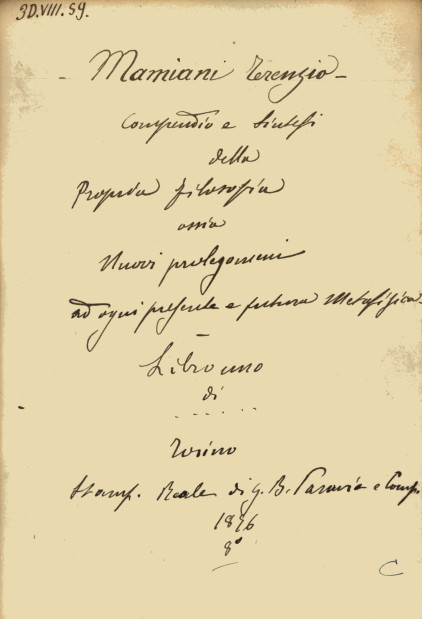 3D.VIII.59.
Mamiani Terenzio
Compendio e Sintesi
della
Propria filosofia
ossia
Nuovi prolegomeni
ad ogni presente e futura Metafisica
Libro uno
di
. . . . . .
Torino
Stamp. Reale di G. B. Paravia e Comp.
1876
8°
C